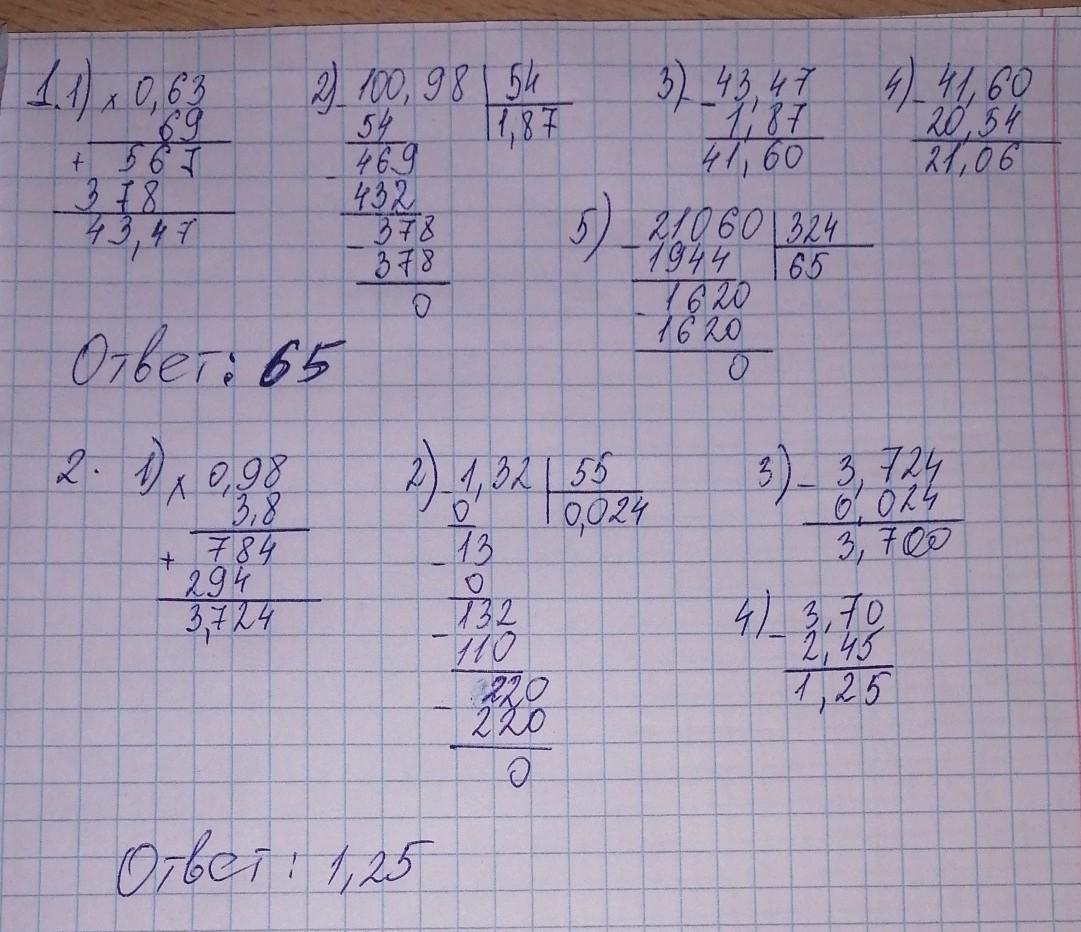 1. 1) × 0,63
69
+ 567
378
43,47
2) - 100,98 | 54
54 | 1,87
- 469
432
- 378
378
0
3) - 43,47
1,87
41,60
4) - 41,60
20,54
21,06
5) - 21060 | 324
1944 | 65
- 1620
1620
0
Ответ: 65
2. 1) × 0,98
3,8
+ 784
294
3,724
2) - 1,32 | 55
0 | 0,024
- 13
0
- 132
110
- 220
220
0
3) - 3,724
0,024
3,700
4) - 3,70
2,45
1,25
Ответ: 1,25